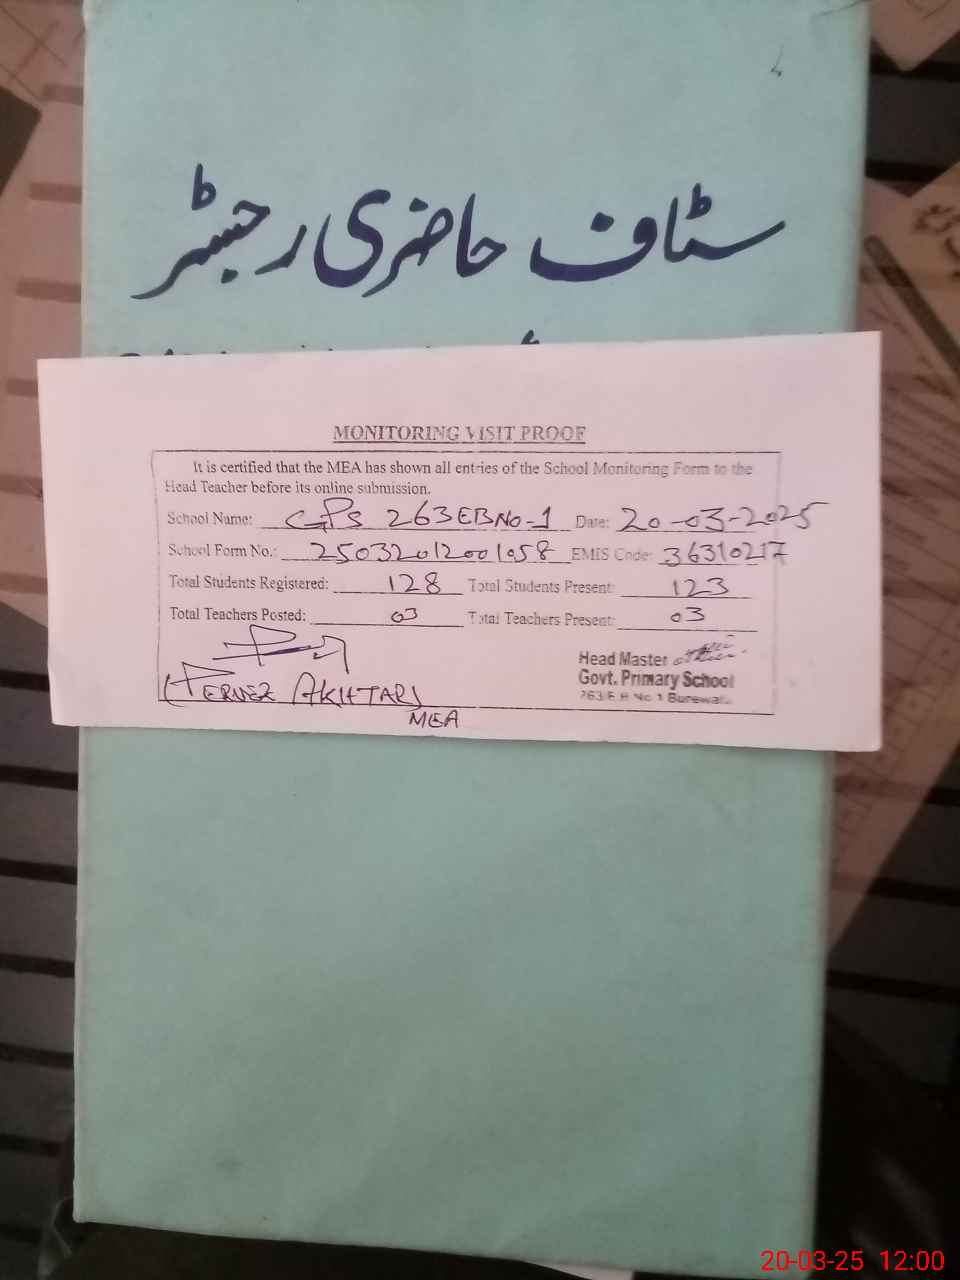 سٹاف حاضری رجسٹر
MONITORING VISIT PROOF
It is certified that the MEA has shown all entries of the School Monitoring Form to the
Head Teacher before its online submission.
School Name: GPS 263EBNO-1 Date: 20-03-2025
School Form No.: 25032012001058 EMIS Code: 36310217
Total Students Registered: 128 Total Students Present: 123
Total Teachers Posted: 03 Total Teachers Present: 03
(PERVEZ AKHTAR)
MEA
Head Master
Govt. Primary School
263 E.B No 1 Burewala
20-03-25 12:00